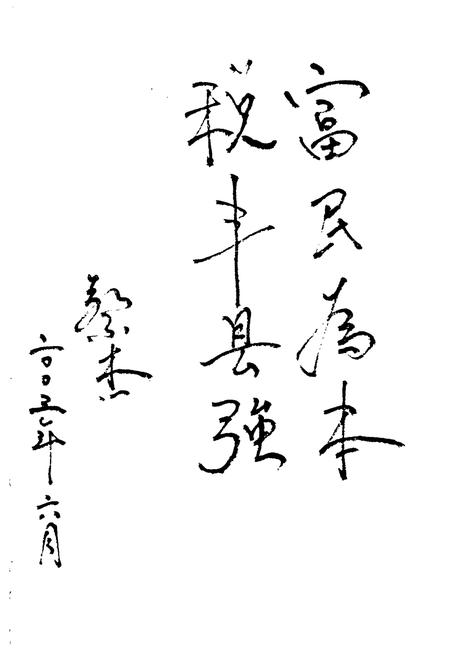 富民為本
税丰县強
蔡杰
二〇〇五年六月